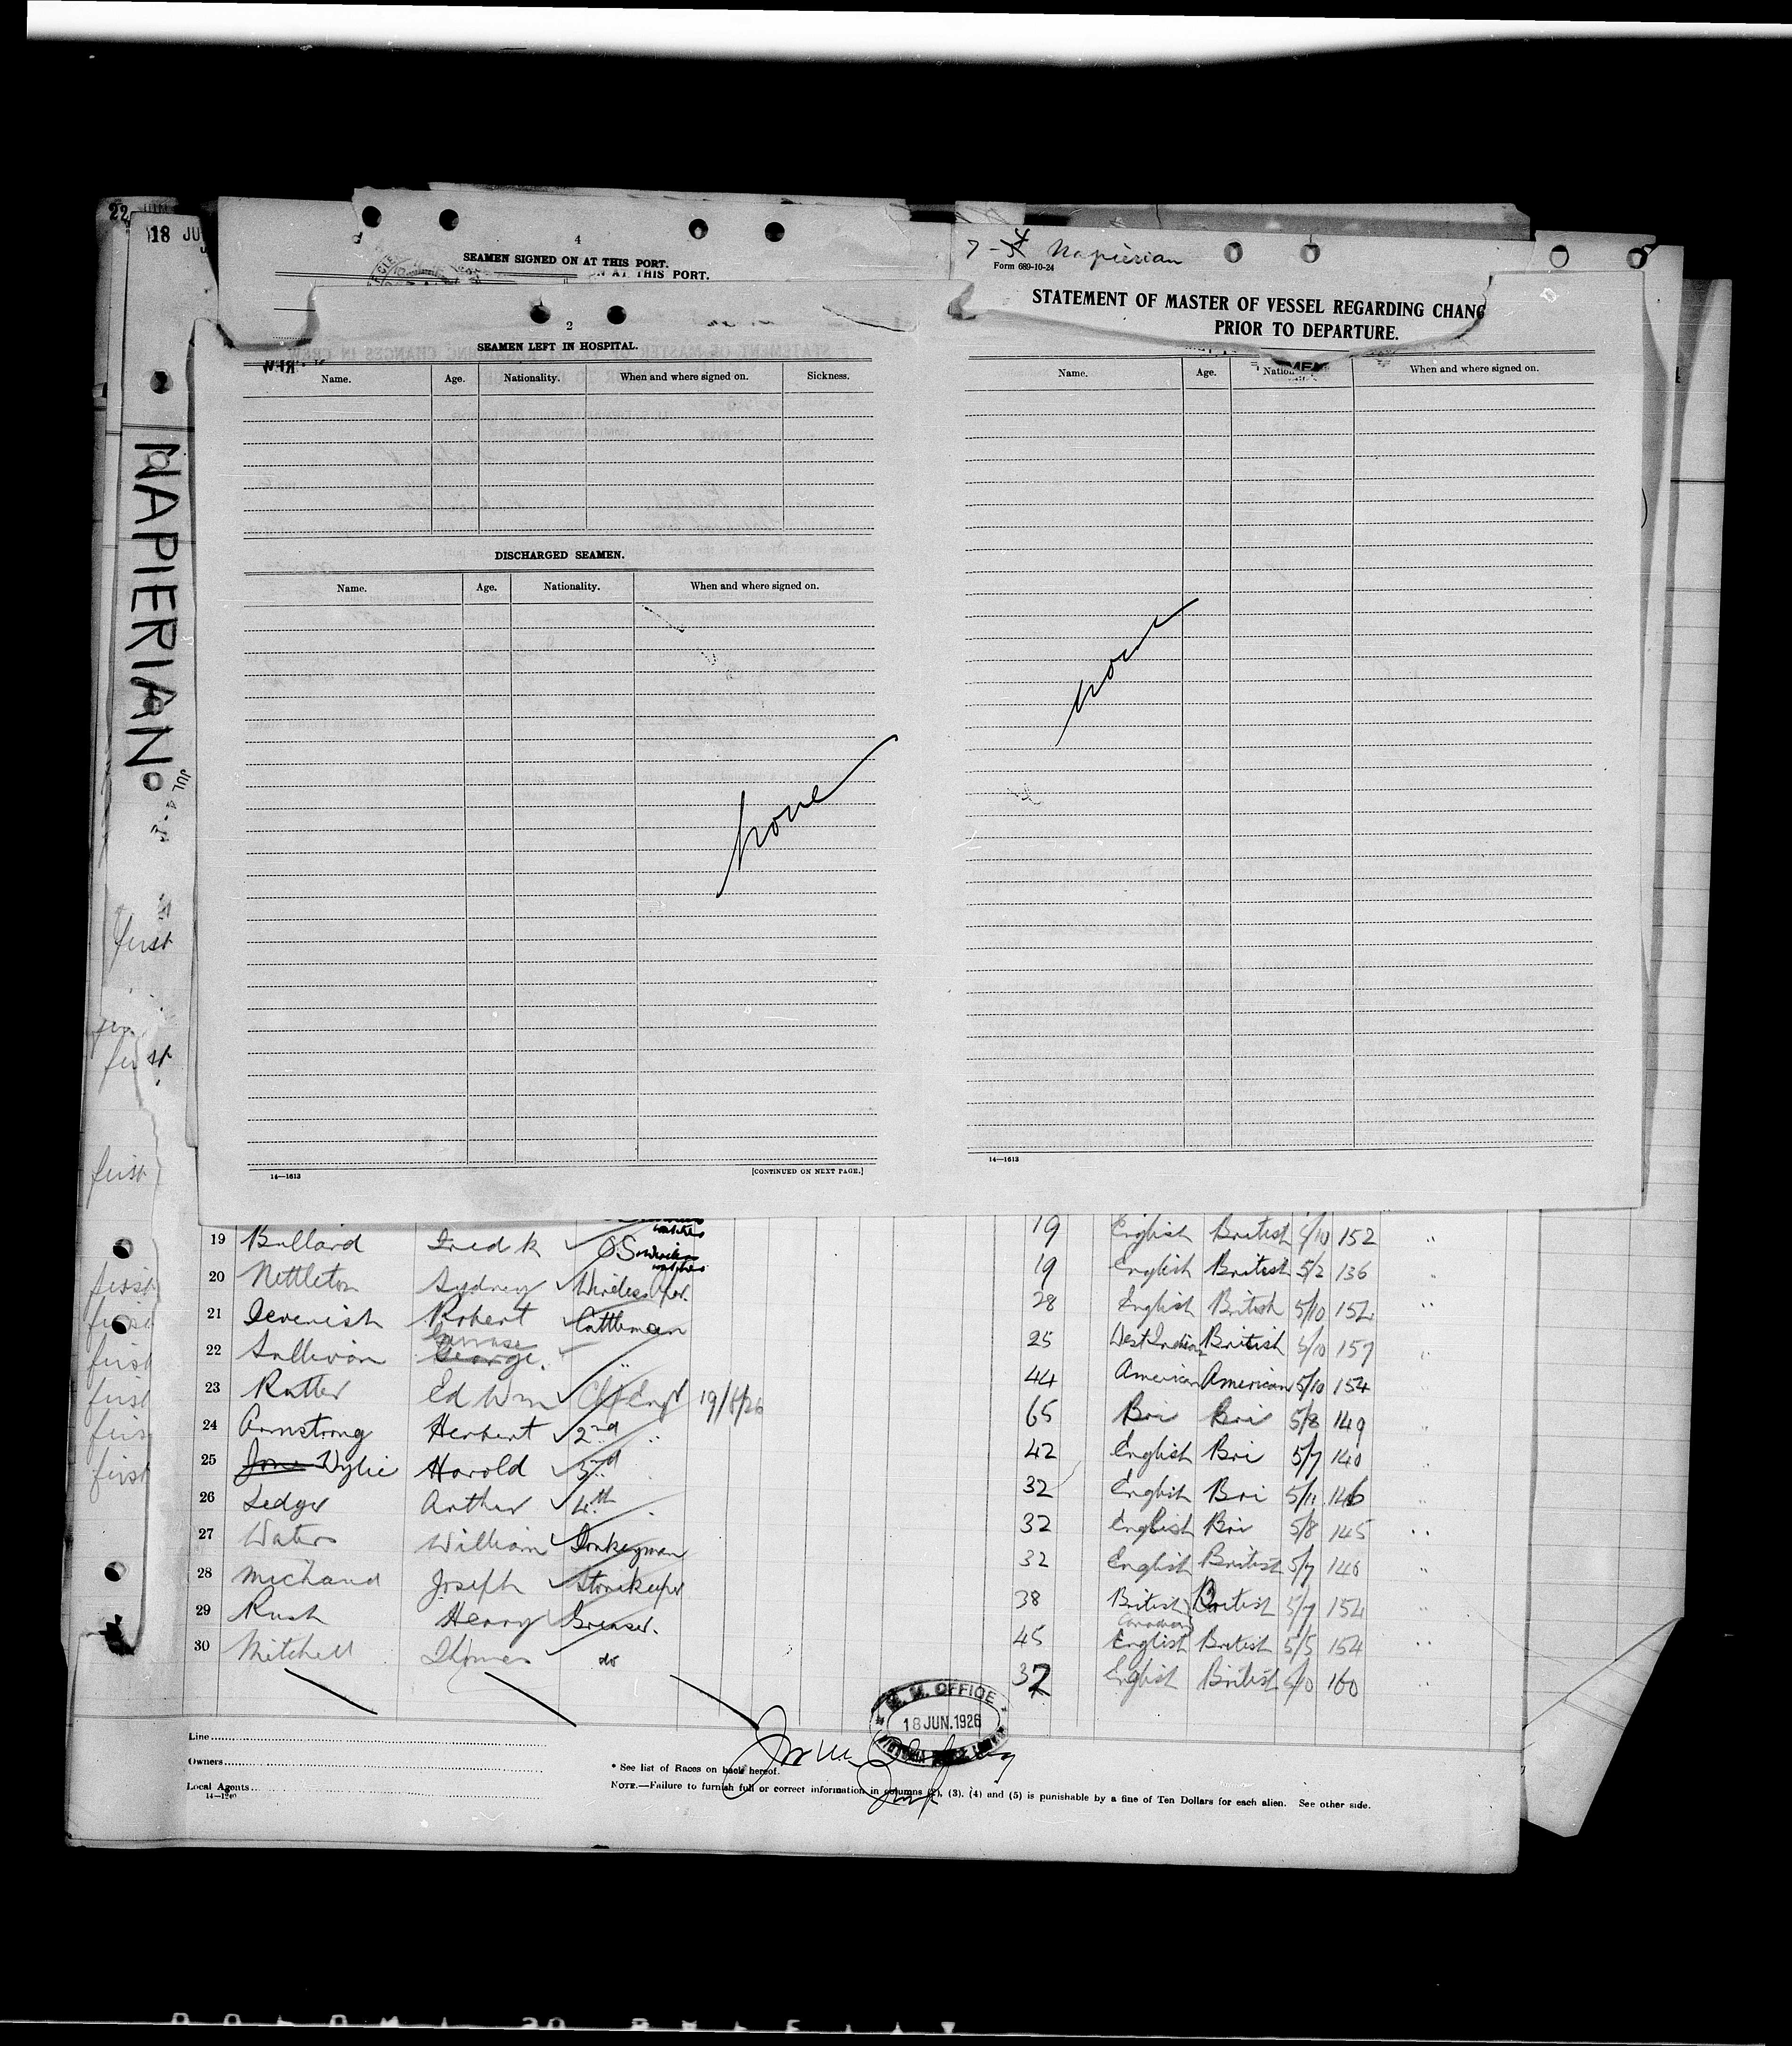 22
18 JU
4
SEAMEN SIGNED ON AT THIS PORT.
ON AT THIS PORT.
2
SEAMEN LEFT IN HOSPITAL.
Name. Age. Nationality. When and where signed on. Sickness.
DISCHARGED SEAMEN.
Name. Age. Nationality. When and where signed on.
none
14—1613 [CONTINUED ON NEXT PAGE.]
7-4 Napierian
Form 689-10-24
STATEMENT OF MASTER OF VESSEL REGARDING CHANG
PRIOR TO DEPARTURE.
Name. Age. Nation When and where signed on.
none
14—1613
NAPIERIAN
first
first
first
first
first
first
first
first
first
19 English British 5/10 152
19 Bullard Fredk O.S. 19 English British 5/2 136
20 Nettleton Sydney Wireless Opr. 28 English British 5/10 152
21 Devenish Robert Cattleman 25 West Indian British 5/10 157
22 Sullivan George. " 44 American American 5/10 154
23 Rutter Ed Wm Chf Engr 19/6/26 65 Bri Bri 5/8 149
24 Armstrong Herbert 2nd " 42 English Bri 5/7 140
25 Wylie Harold 3rd 32 English Bri 5/11 146
26 Ledger Arthur 4th 32 English Bri 5/8 145
27 Waters William Donkeyman 32 English British 5/7 146
28 Michaud Joseph Storekeeper 38 British Canadian British 5/7 154
29 Rush Henry Greaser. 45 English British 5/5 154
30 Mitchell Thomas do 37 English British 5/10 160
M. M. OFFICE
18 JUN. 1926
Line
Owners
Local Agents
14—1240
* See list of Races on back hereof.
NOTE.—Failure to furnish full or correct information in columns (2), (3), (4) and (5) is punishable by a fine of Ten Dollars for each alien. See other side.